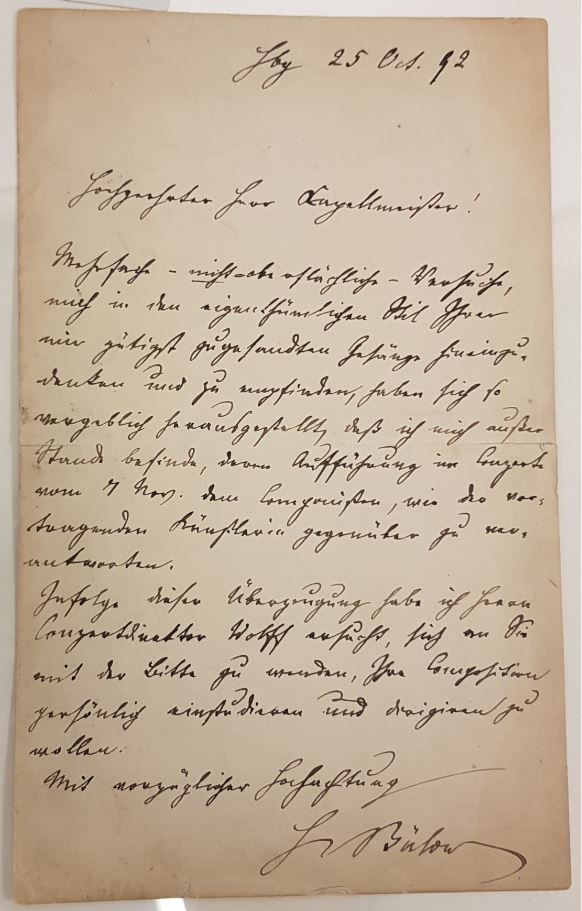 Hbg 25 Oct. 92
Hochgeehrter Herr Kapellmeister!
Mehrfache – nicht oberflächliche – Versuche,
mich in den eigenthümlichen Stil Ihrer
mir gütigst zugesandten Gesänge hineinzu-
denken und zu empfinden, haben sich so
vergeblich herausgestellt, daß ich mich außer
Stande befinde, deren Aufführung im Conzerte
vom 7 Nov. dem Componisten, wie der vor-
tragenden Künstlerin gegenüber zu ver-
antworten.
Infolge dieser Überzeugung habe ich Herrn
Conzertdirektor Wolff ersucht, sich an Sie
mit der Bitte zu wenden, Ihre Composition
persönlich einstudieren und dirigiren zu
wollen.
Mit vorzüglicher Hochachtung
H v Bülow